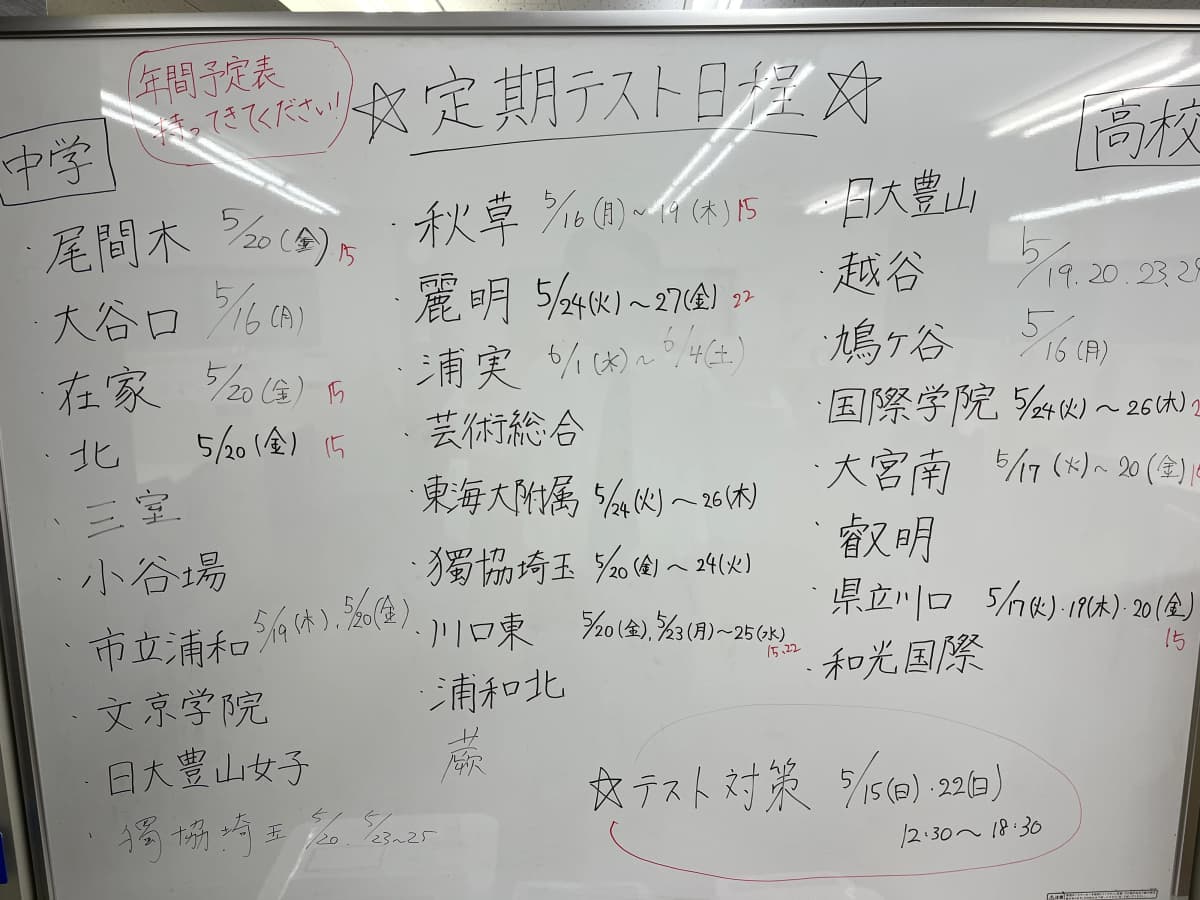 年間予定表
持ってきてください!
☆定期テスト日程☆
中学
・尾間木 5/20(金) 15
・大谷口 5/16(月)
・在家 5/20(金) 15
・北 5/20(金) 15
・三室
・小谷場
・市立浦和 5/19(木)、5/20(金)
・文京学院
・日大豊山女子
・獨協埼玉 5/20. 5/23~25
・秋草 5/16(月)~19(木) 15
・麗明 5/24(火)~27(金) 22
・浦実 6/1(水)~6/4(土)
・芸術総合
・東海大附属 5/24(火)~26(木)
・獨協埼玉 5/20(金)~24(火)
・川口東 5/20(金)、5/23(月)~25(水)
15.22
・浦和北
蕨
高校
・日大豊山
・越谷 5/19.20.23.2
・鳩ヶ谷 5/16(月)
・国際学院 5/24(火)~26(木)
・大宮南 5/17(火)~20(金)
・叡明
・県立川口 5/17(火)・19(木)・20(金)
15
・和光国際
☆テスト対策 5/15(日)・22(日)
12:30~18:30